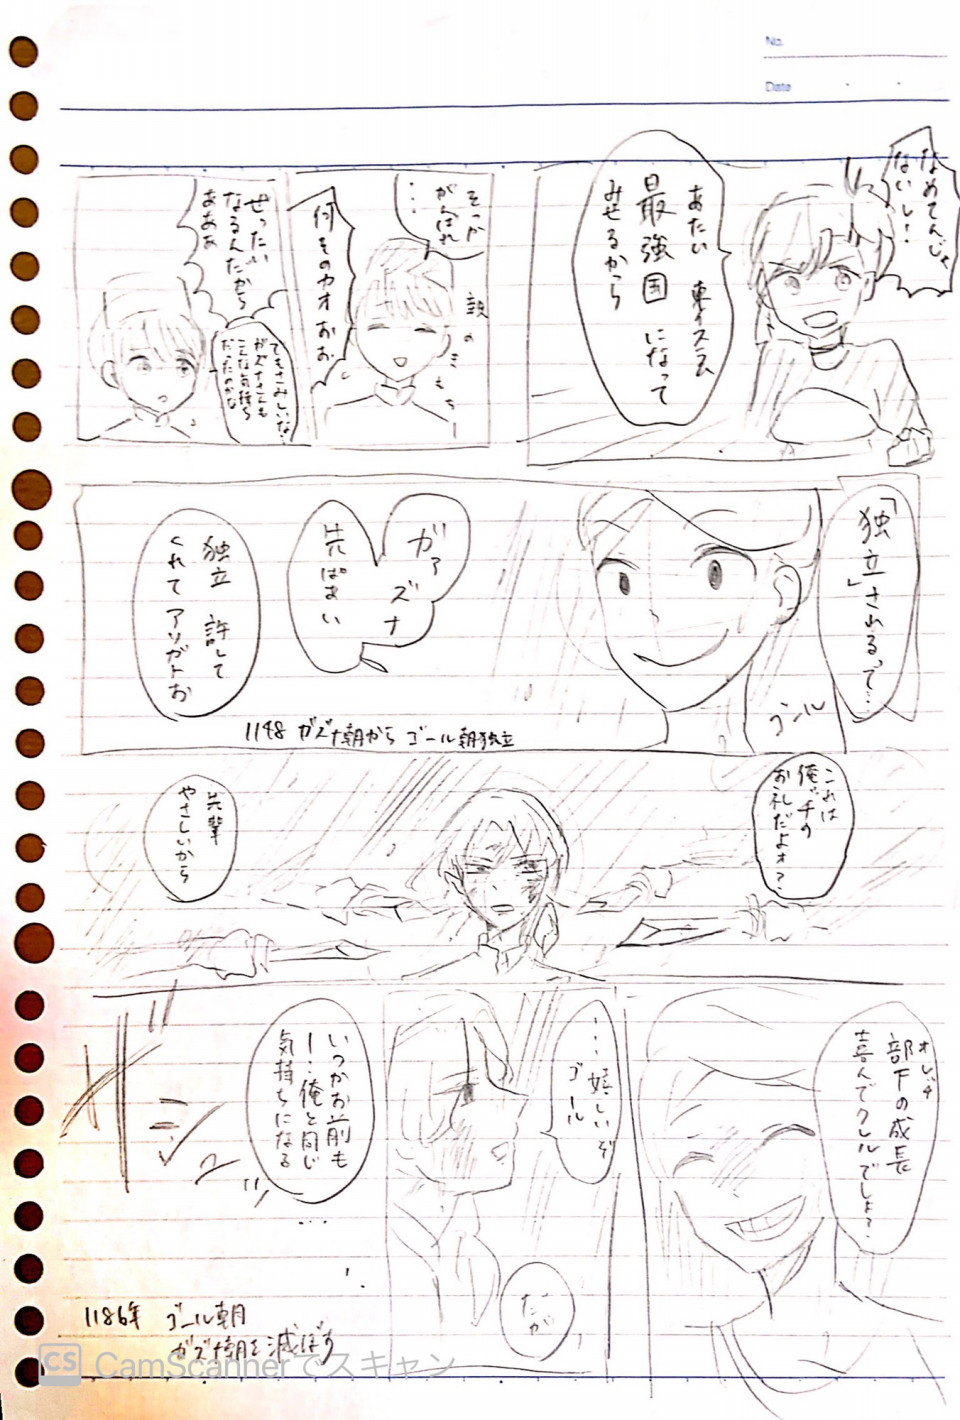 No.
Date
なめてんじゃ
ないし!
あたい 東イスラム
最強国 になって
みせるから
そっか
がんばれ
…
親のまえもー
何そのカオおお
ぜったい
なるんだから
あああ
でもさみしいな…
ガズナさんも
こんな気持ち
だったのかな
「独立」されるって…
ゴール
ガァズナ
先ぱぁい
独立 許して
くれて アリガトお
1148 ガズナ朝から ゴール朝独立
これは
俺ッチの
お礼だよォ?
先輩
やさしいから
オレッチ
部下の成長
喜んでクレルでしょ?
…嬉しいぞ
ゴール
だが
いつかお前も
ー…俺と同じ
気持ちになる
…
1186年 ゴール朝
ガズナ朝を滅ぼす
CS CamScannerでスキャン